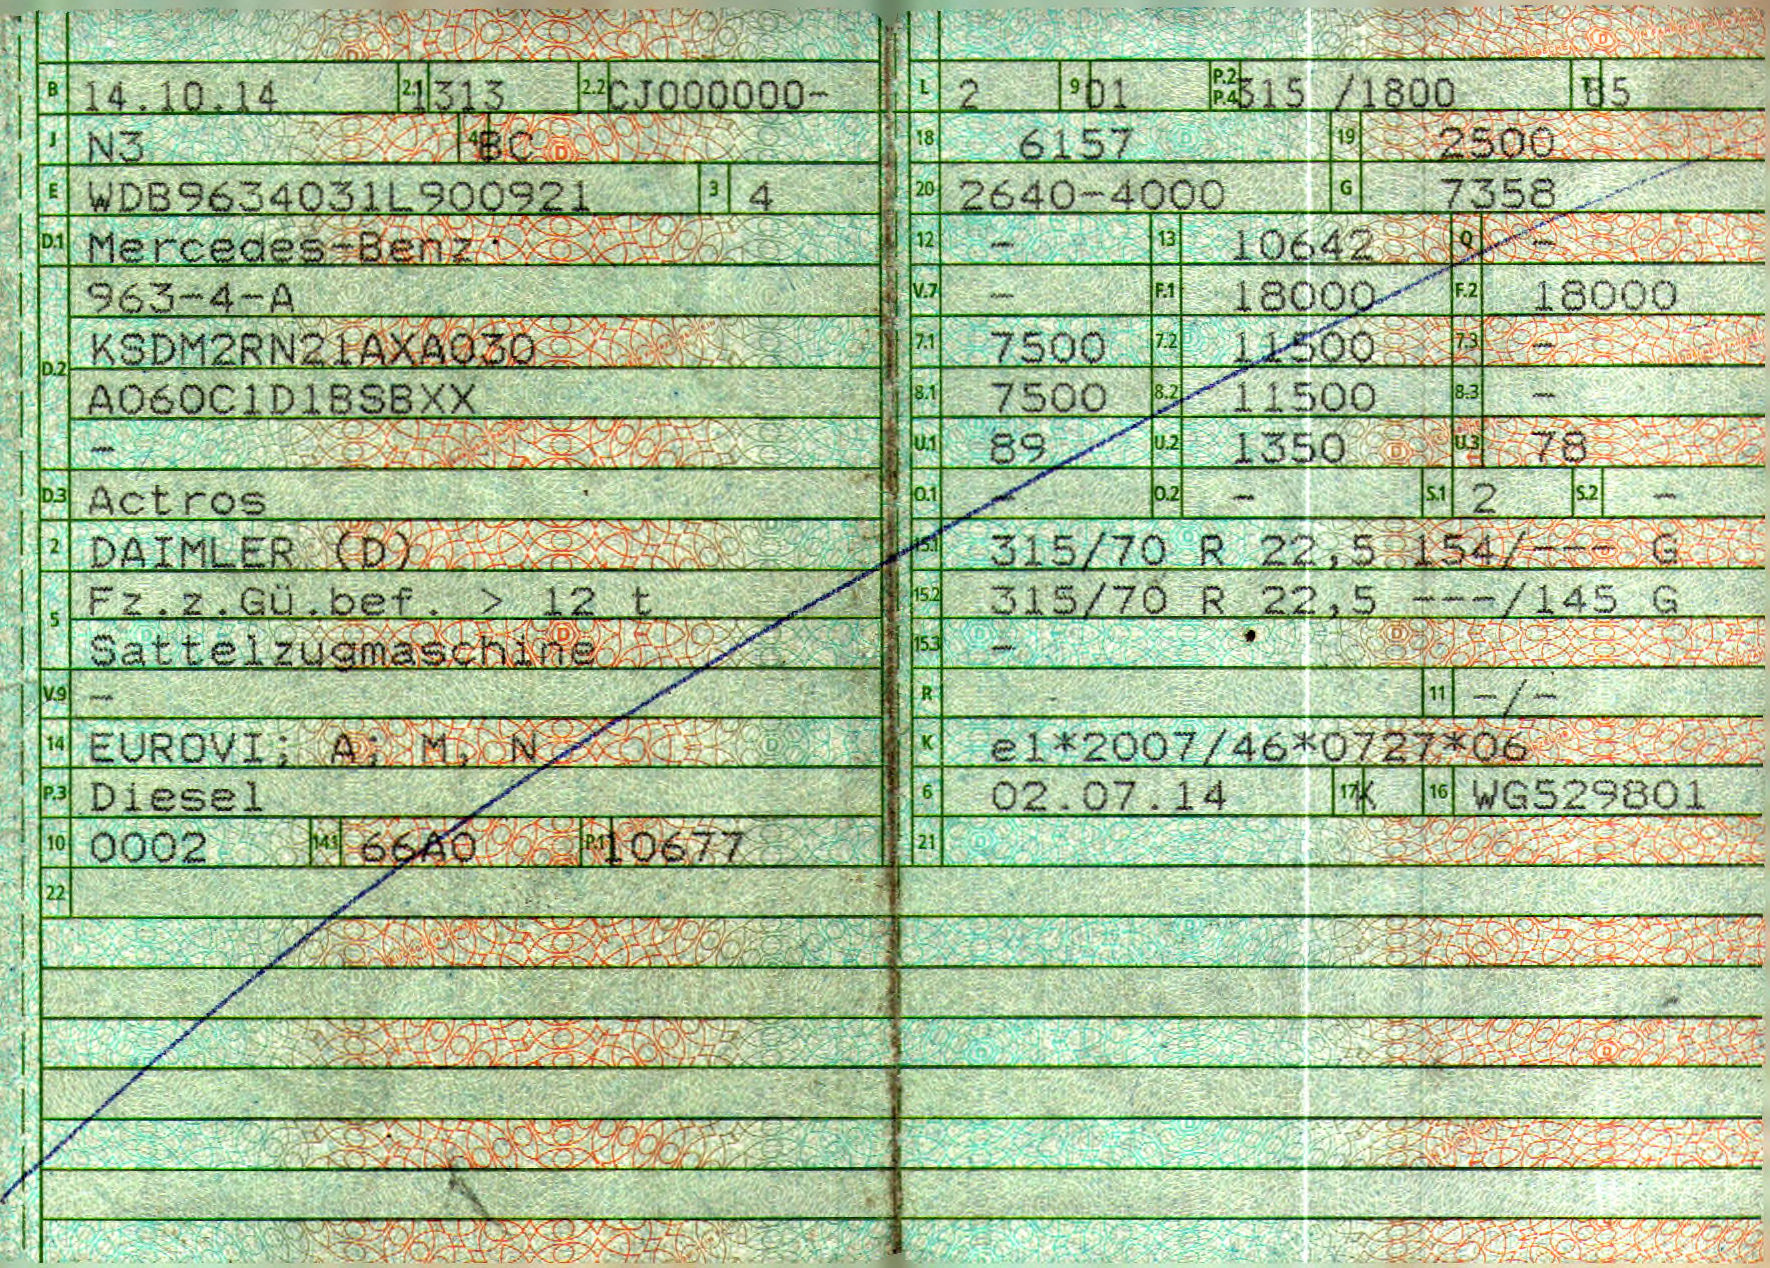 B 14.10.14 2.1 1313 2.2 CJ000000-
J N3 4 BC
E WDB9634031L900921 3 4
D.1 Mercedes-Benz
963-4-A
D.2 KSDM2RN21AXA030
A060C1D1BSBXX
-
D.3 Actros
2 DAIMLER (D)
5 Fz.z.Gü.bef. > 12 t
Sattelzugmaschine
V.9 -
14 EUROVI; A; M, N
P.3 Diesel
10 0002 14.1 66A0 P.1 10677
22
L 2 9 01 P.2 P.4 315 /1800 T 85
18 6157 19 2500
20 2640-4000 G 7358
12 - 13 10642 Q -
V.7 - F.1 18000 F.2 18000
7.1 7500 7.2 11500 7.3 -
8.1 7500 8.2 11500 8.3 -
U.1 89 U.2 1350 U.3 78
O.1 - O.2 - S.1 2 S.2 -
15.1 315/70 R 22,5 154/--- G
15.2 315/70 R 22,5 ---/145 G
15.3 -
R 11 -/-
K e1*2007/46*0727*06
6 02.07.14 17 K 16 WG529801
21